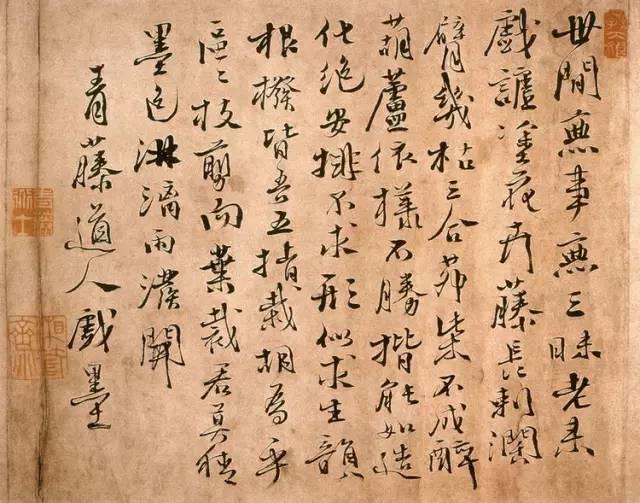 世間無事無三昧老來
戲謔塗花卉藤長刺闊
臂幾枯三合茅柴不成醉
葫蘆依樣不勝揩能如造
化絕安排不求形似求生韻
根撥皆吾五指栽胡為乎
區々枝剪而葉裁君莫猜
墨色淋漓雨潑開
青藤道人戲墨